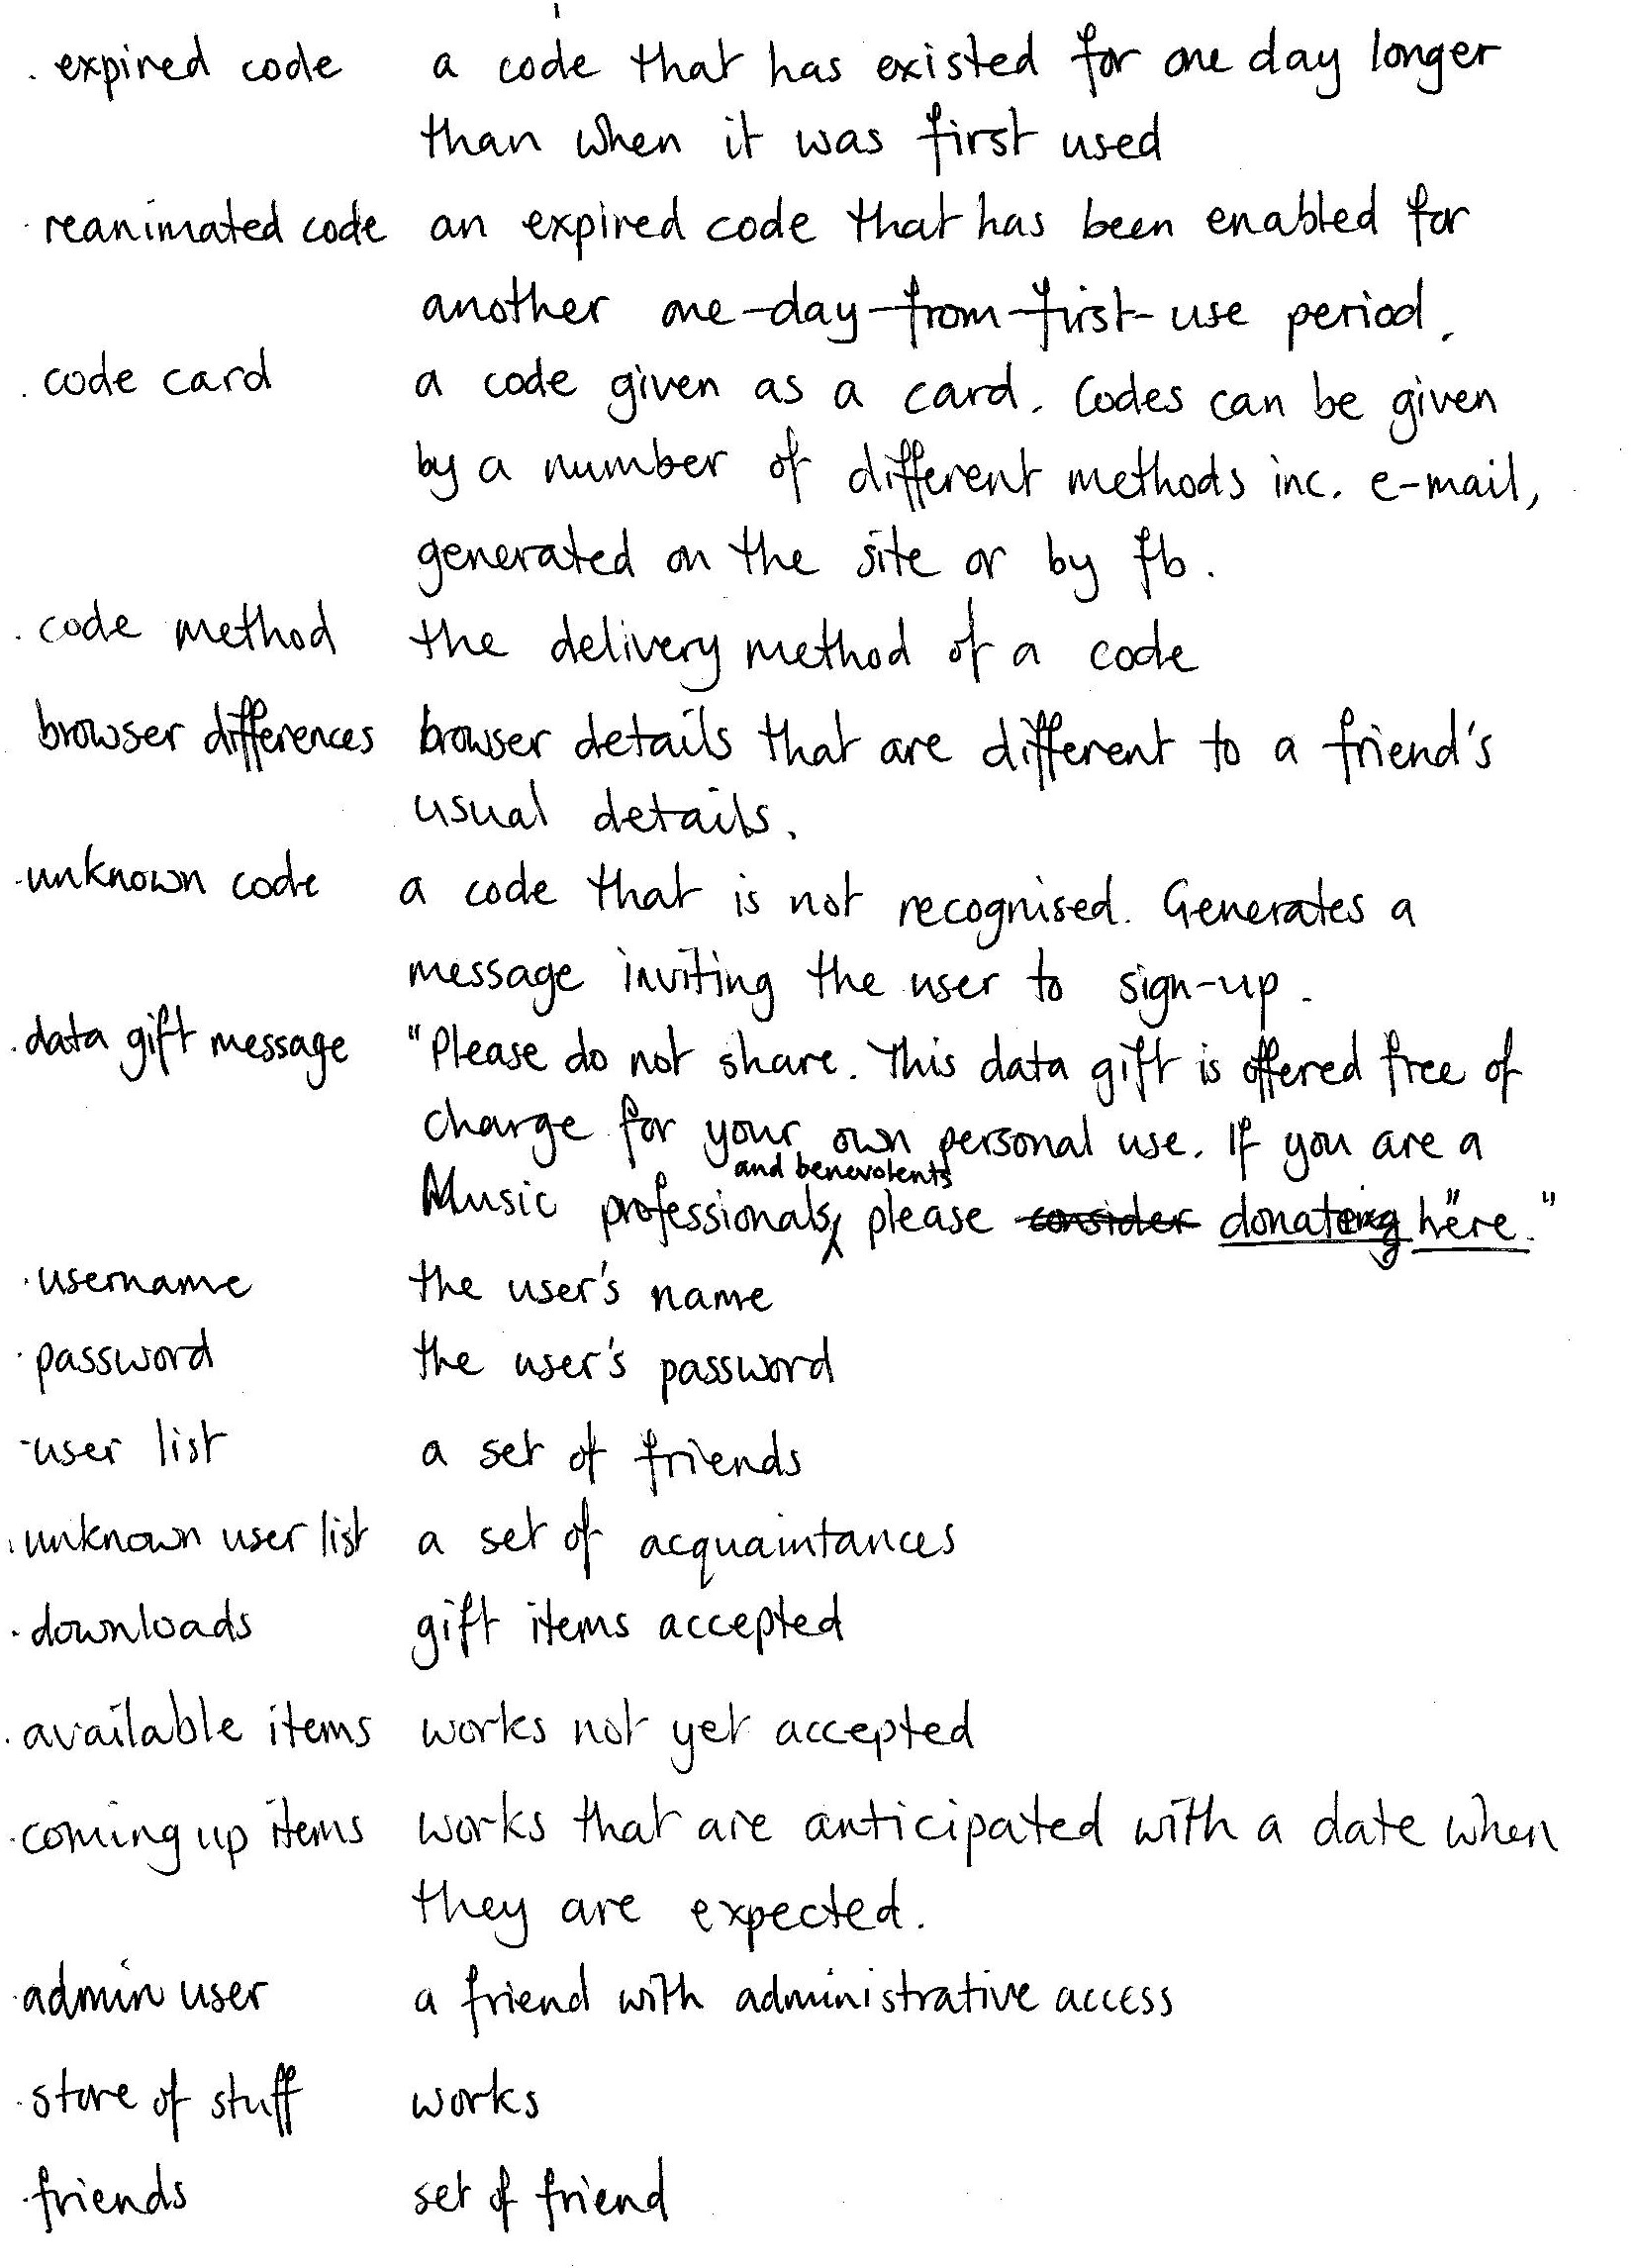 . expired code a code that has existed for one day longer
than when it was first used
. reanimated code an expired code that has been enabled for
another one-day-from-first-use period.
. code card a code given as a card. Codes can be given
by a number of different methods inc. e-mail,
generated on the site or by fb.
. code method the delivery method of a code
. browser differences browser details that are different to a friend's
usual details.
. unknown code a code that is not recognised. Generates a
message inviting the user to sign-up.
. data gift message "Please do not share. This data gift is offered free of
charge for your own personal use. If you are a
and benevolents
Music professionals, please consider donate here."
. username the user's name
. password the user's password
. user list a set of friends
. unknown user list a set of acquaintances
. downloads gift items accepted
. available items works not yet accepted
. coming up items works that are anticipated with a date when
they are expected.
. admin user a friend with administrative access
. store of stuff works
. friends set of friend